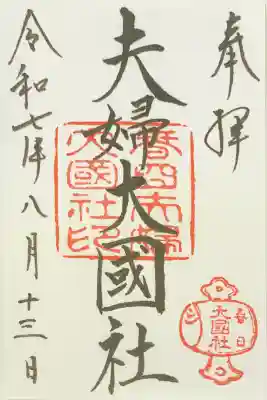 奉拝
夫婦大國社
春日夫婦
大國社印
春日
大國社
令和七年八月十三日